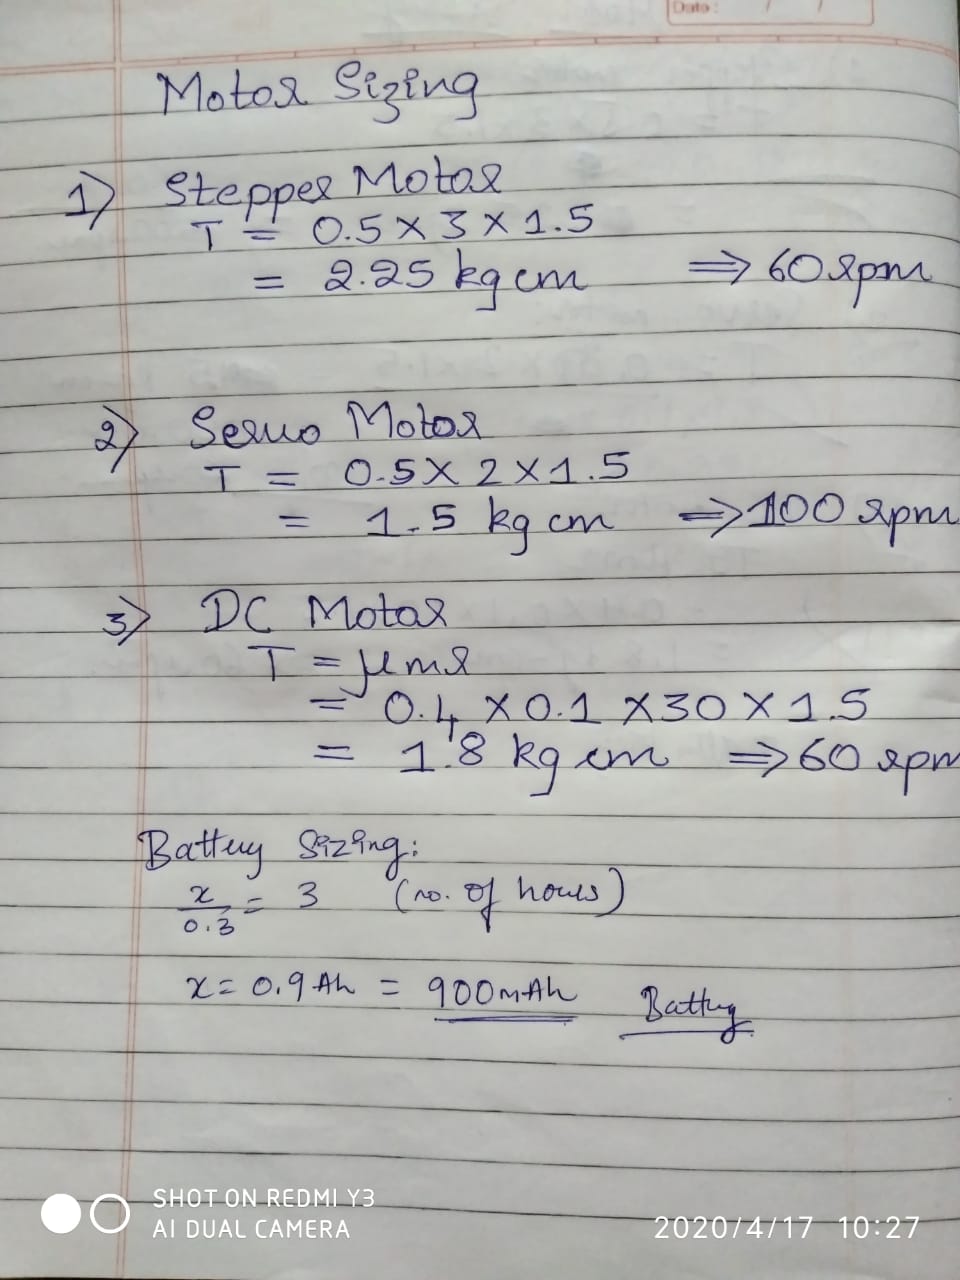 Date: / /
Motor Sizing
1) Stepper Motor
T = 0.5 X 3 X 1.5
= 2.25 kg cm ⇒ 60 rpm
2) Servo Motor
T = 0.5 X 2 X 1.5
= 1.5 kg cm ⇒ 100 rpm
3) DC Motor
T = μmr
= 0.4 X 0.1 X 30 X 1.5
= 1.8 kg cm ⇒ 60 rpm
Battery Sizing:
x/0.3 = 3 (no. of hours)
x = 0.9 Ah = 900mAh Battery
SHOT ON REDMI Y3
AI DUAL CAMERA
2020/4/17 10:27